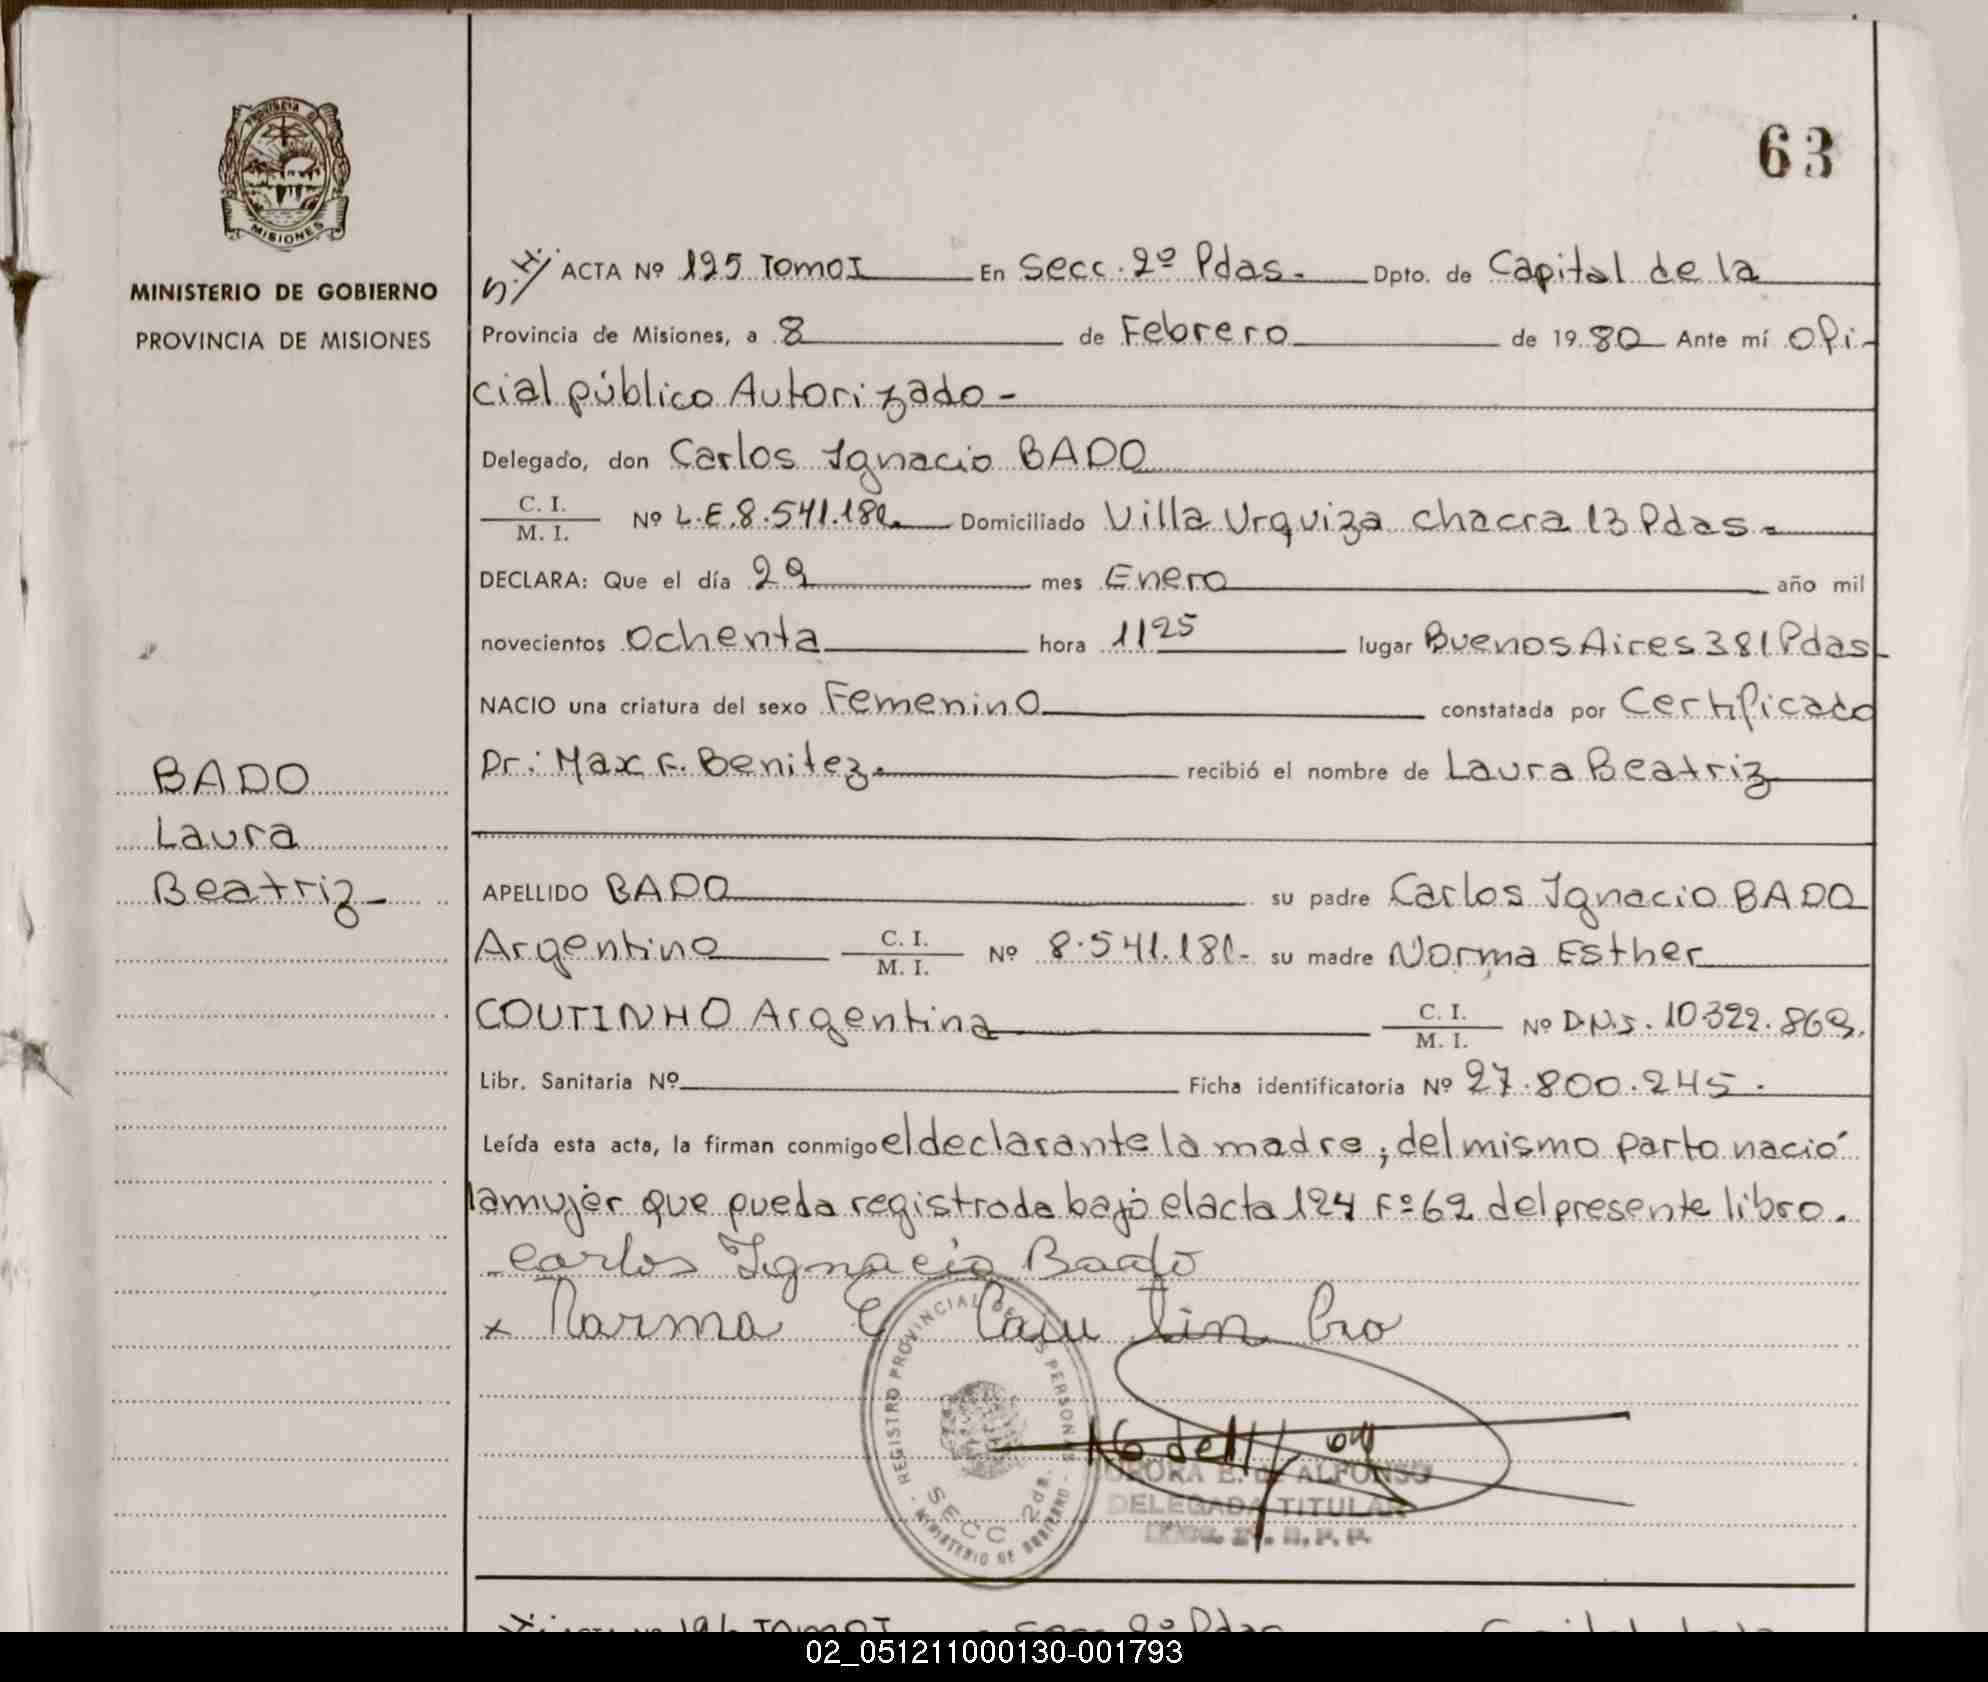 63
PROVINCIA DE
MISIONES
MINISTERIO DE GOBIERNO
PROVINCIA DE MISIONES
ACTA Nº 125 Tomo I En Secc. 2º Pdas. Dpto. de Capital de la
Provincia de Misiones, a 8 de Febrero de 1980 Ante mí Ofi-
cial público Autorizado-
Delegado, don Carlos Ignacio BADO
C. I.
M. I. Nº L.E. 8.541.181. Domiciliado Villa Urquiza chacra 13 Pdas.
DECLARA: Que el día 29 mes Enero año mil
novecientos ochenta hora 11 25 lugar Buenos Aires 381 Pdas
NACIO una criatura del sexo Femenino constatada por Certificado
Dr: Max F. Benitez. recibió el nombre de Laura Beatriz
BADO
Laura
Beatriz-
APELLIDO BADO su padre Carlos Ignacio BADO
Argentino C. I.
M. I. Nº 8.541.181- su madre Norma Esther
COUTINHO Argentina C. I.
M. I. Nº D.N.I. 10.322.869.
Libr. Sanitaria Nº Ficha identificatoria Nº 27.800.245.
Leída esta acta, la firman conmigo el declarante la madre; del mismo parto nació
la mujer que queda registrada bajo el acta 124 Fº 62 del presente libro.
Carlos Ignacio Bado
x Norma E
REGISTRO PROVINCIAL DE LAS PERSONAS
SECC 2da.
MINISTERIO DE GOBIERNO
E. de ALFONSO
DELEGADA TITULAR
Tomo I Secc 2º Pdas
02_051211000130-001793